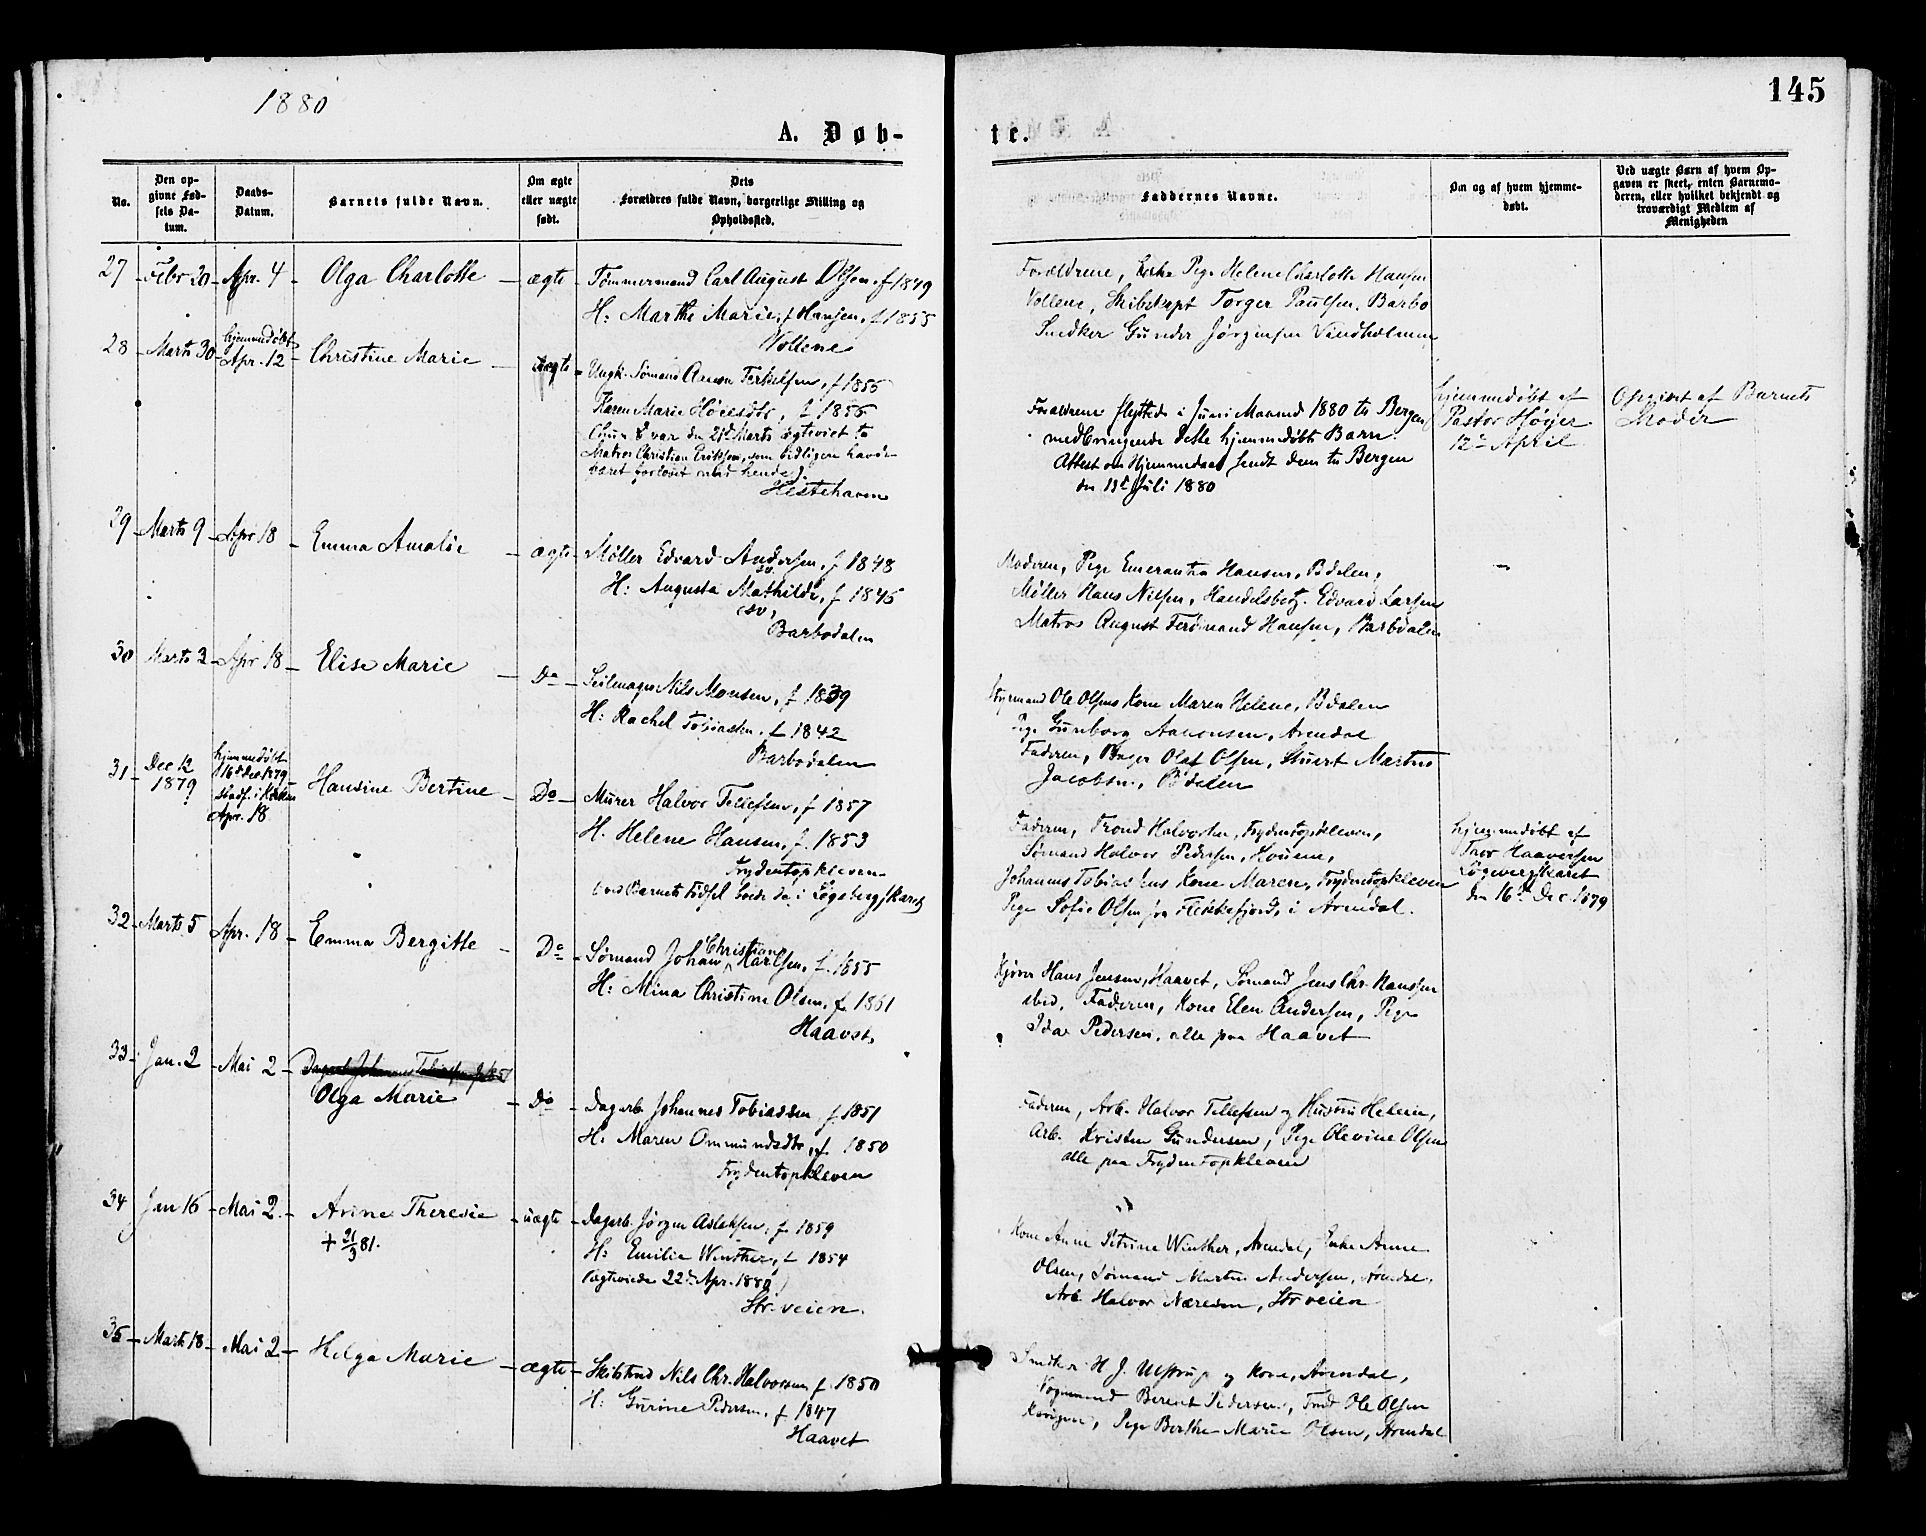 1880
145
A. Døb-
te.
No.
Den op-
givne Fød-
sels Da-
tum.
Daabs-
Datum.
Barnets fulde Navn.
Om ægte
eller uægte
født.
Dets
Forældres fulde Navn, borgerlige Stilling og
Opholdssted.
Faddernes Navne.
Om og af hvem hjemme-
døbt.
Ved uægte Børn af hvem Op-
gaven er skeet, enten Barnemo-
deren, eller hvilket bekjendt og
troværdigt Medlem af
Menigheden
27 Febr 20 Apr. 4 Olga Charlotte ægte
Tømmermand Carl August Olsen, f 1849
H: Marthe Marie, f Hansen, f 1855
Vollene
Forældrene, Pige Helene Charlotte Hansen
Vollene, Skibskapt Torger Paulsen, Barbo
Snedker Gunder Jørgensen Vindholmen
28 Marts 30 hjemmedøbt
Apr. 12 Christine Marie uægte
Ungk. Sømand Terkelsen, f 1855
Karen Marie Høiesdtr, f 1856
var den 21de Marts ægteviet to
Matros Christian Eriksen, som tidligere havde
været forlovet med hende).
Hestehaven
Forældrene flyttede i Juni Maaned 1880 til Bergen
medbringende dette hjemmedøbte Barn.
Attest om Hjemmedaab sendt dem til Bergen
den 13de Juli 1880
hjemmedøbt af
Pastor Høyer
12te April
Opgivet af Barnets
Moder
29 Marts 9 Apr 18 Emma Amalie ægte
Møller Edvard Andersen, f 1848
H: Augusta Mathilde, f 1845
Barbodalen
Moderen, Pige Emerantia Hansen, Bdalen,
Møller Hans Nilsen, Handelsbetj. Edvard Larsen
Matros August Ferdinand Hansen, Barbodalen
30 Marts 3 Apr 18 Elise Marie Do
Seilmager Nils Monsen, f 1839
H: Rachel Tobiasen, f 1842
Barbodalen
Styrmand Ole Olsens Kone Maren Helene, Bdalen
Pige Gunborg Aanonsen, Arendal
Faderen, Olaf Olsen, Stuert Martin
Jacobsen, Bdalen
31 Dec 12
1879
hjemmedøbt
16de Dec 1879
stadf. i Kirken
Apr. 18
Hansine Bertine Do
Murer Halvor Tellefsen, f 1857
H. Helene Hansen, f. 1853
Frydentopkleven
(ved Barnets Fødsel boede de i Løgebergskaret)
Faderen, Trond Halvorsen, Frydentopkleven,
Sømand Halvor Pedersen, Hovene,
Johannes Tobiassens Kone Maren, Frydentopkleven
Pige Sofie Olsen fra Flekkefjord, i Arendal.
hjemmedøbt af
Tror Haaversen
den 16de Dec. 1879
32 Marts 5 Apr. 18 Emma Bergitte Do
Sømand Johan Christian Karlsen, f. 1855
H: Mina Christine Olsen, f. 1861
Haavet.
Kjører Hans Jensen, Haavet, Sømand Jens Chr. Hanssen
ibid, Faderen, Kone Elen Andersen, Pige
Ida Pedersen, alle paa Haavet
33 Jan. 2 Mai 2 Olga Marie Do
Dagarb. Johannes Tobiassen f 1851
H: Maren Ommundsdtr, f. 1850
Frydentopkleven
Faderen, Arb. Halvor Tellefsen og Hustru Helene,
Arb. Kristen Gundersen, Pige Olevine Olsen
alle paa Frydentopkleven
34 Jan 16 Mai 2 Arine Theresie uægte
+ 21/3 81.
Dagarb. Jørgen Aslaksen, f 1859
H: Emilie Winther, f 1854
(ægteviede 22de Apr. 1880)
Str. veien.
Kone Anne Petrine Winther, Arendal, Enke Anne
Olsen, Sømand Martin Andersen, Arendal,
Arb. Halvor Næresen, Strveien
35 Marts 18 Mai 2 Helga Marie ægte
Nils Chr. Halvorsen f. 1850
H: Gurine Pedersen, f 1847
Haavet
Snedker H. J. Ulstrup og Kone, Arendal,
Vognmand Berent Pedersen, Ole Olsen
Pige Berthe Marie Olsen, Arendal